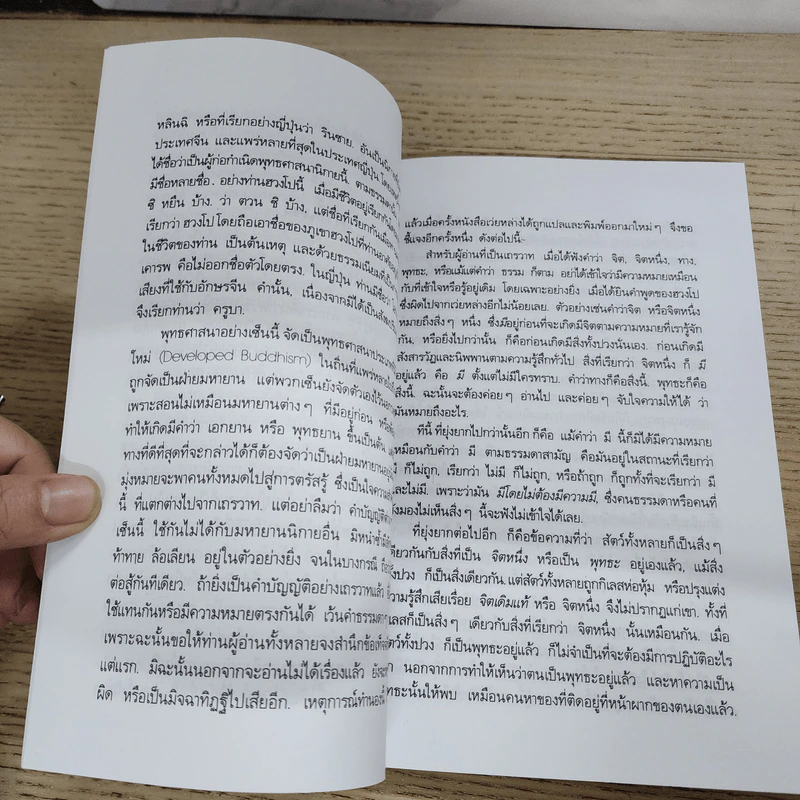 หลินฉิ หรือที่เรียกอย่างญี่ปุ่นว่า รินซาย. อันเป็นนิกาย
ประเทศจีน และแพร่หลายที่สุดในประเทศญี่ปุ่น
ได้ชื่อว่าเป็นผู้ก่อกำเนิดพุทธศาสนานิกายนี้ ตามธรรมดา
มีชื่อหลายชื่อ. อย่างท่านฮวงโปนี้ เมื่อมีชีวิตอยู่เรียกกัน
ซิ หยืน บ้าง. ว่า ตวน ชิ บ้าง, แต่ชื่อที่เรียกกัน
เรียกว่า ฮวงโป โดยถือเอาชื่อของภูเขาฮวงโปที่ท่าน
ในชีวิตของท่าน เป็นต้นเหตุ และด้วยธรรมเนียม
เคารพ คือไม่ออกชื่อตัวโดยตรง. ในญี่ปุ่น ท่านมีชื่อ
เสียงที่ใช้กับอักษรจีน คำนั้น, เนื่องจากมิได้เป็น
จึงเรียกท่านว่า ครูบา.
พุทธศาสนาอย่างเซ็นนี้ จัดเป็นพุทธศาสนา
ใหม่ (Developed Buddhism) ในถิ่นที่แพร่หลาย
ถูกจัดเป็นฝ่ายมหายาน แต่พวกเซ็นยังจัดตัวเองไว้
เพราะสอนไม่เหมือนมหายานต่างๆ ที่มีอยู่ก่อน
ทำให้เกิดมีคำว่า เอกยาน หรือ พุทธยาน ขึ้นเป็นต้น
ทางที่ดีที่สุดที่จะกล่าวได้ก็ต้องจัดว่าเป็นฝ่ายมหายาน
มุ่งหมายจะพาคนทั้งหมดไปสู่การตรัสรู้ ซึ่งเป็นใจความ
นี้ ที่แตกต่างไปจากเถรวาท. แต่อย่าลืมว่า คำบัญญัติ
เซ็นนี้ ใช้กันไม่ได้กับมหายานนิกายอื่น มิหนำซ้ำ
ท้าทาย ล้อเลียน อยู่ในตัวอย่างยิ่ง จนในบางกรณี
ต่อสู้กันทีเดียว. ถ้ายิ่งเป็นคำบัญญัติอย่างเถรวาทแล้ว
ใช้แทนกันหรือมีความหมายตรงกันได้ เว้นคำธรรมดา
เพราะฉะนั้นขอให้ท่านผู้อ่านทั้งหลายจงสำนึกข้อ
แต่แรก. มิฉะนั้นนอกจากจะอ่านไม่ได้เรื่องแล้ว
ผิด หรือเป็นมิจฉาทิฏฐิไปเสียอีก. เหตุการณ์ทำนองนี้
แล้วเมื่อครั้งหนังสือเว่ยหล่างได้ถูกแปลและพิมพ์ออกมาใหม่ๆ จึงขอ
ชี้แจงอีกครั้งหนึ่ง ดังต่อไปนี้:-
สำหรับผู้อ่านที่เป็นเถรวาท เมื่อได้ฟังคำว่า จิต, จิตหนึ่ง, ทาง,
พุทธะ, หรือแม้แต่คำว่า ธรรม ก็ตาม อย่าได้เข้าใจว่ามีความหมายเหมือน
กับที่เข้าใจหรือรู้อยู่เดิม โดยเฉพาะอย่างยิ่ง เมื่อได้ยินคำพูดของฮวงโป
ซึ่งผิดไปจากเว่ยหล่างอีกไม่น้อยเลย. ตัวอย่างเช่นคำว่า จิต หรือจิตหนึ่ง
หมายถึงสิ่งๆ หนึ่ง ซึ่งมีอยู่ก่อนที่จะเกิดมีจิตตามความหมายที่เรารู้จัก
กัน, หรือยิ่งไปกว่านั้น ก็คือก่อนเกิดมีสิ่งทั้งปวงนั่นเอง. ก่อนเกิดมี
สังสารวัฏและนิพพานตามความรู้สึกทั่วไป สิ่งที่เรียกว่า จิตหนึ่ง ก็ มี
อยู่แล้ว คือ มี ตั้งแต่ไม่มีใครทราบ. คำว่าทางก็คือสิ่งนี้. พุทธะก็คือ
สิ่งนี้. ฉะนั้นจะต้องค่อยๆ อ่านไป และค่อยๆ จับใจความให้ได้ ว่า
มันหมายถึงอะไร.
ทีนี้ ที่ยุ่งยากไปกว่านั้นอีก ก็คือ แม้คำว่า มี นี้ก็มิได้มีความหมาย
เหมือนกับคำว่า มี ตามธรรมดาสามัญ คือมันอยู่ในสถานะที่เรียกว่า
มี ก็ไม่ถูก, เรียกว่า ไม่มี ก็ไม่ถูก, หรือถ้าถูก ก็ถูกทั้งที่จะเรียกว่า มี
และไม่มี. เพราะว่ามัน มีโดยไม่ต้องมีความมี, ซึ่งคนธรรมดาหรือคนที่
มองไม่เห็นสิ่งๆ นี้จะฟังไม่เข้าใจได้เลย.
ที่ยุ่งยากต่อไปอีก ก็คือข้อความที่ว่า สัตว์ทั้งหลายก็เป็นสิ่งๆ
เดียวกันกับสิ่งที่เป็น จิตหนึ่ง หรือเป็น พุทธะ อยู่เองแล้ว, แม้สิ่ง
ทั้งปวง ก็เป็นสิ่งเดียวกัน. แต่สัตว์ทั้งหลายถูกกิเลสห่อหุ้ม หรือปรุงแต่ง
ความรู้สึกเสียเรื่อย จิตเดิมแท้ หรือ จิตหนึ่ง จึงไม่ปรากฏแก่เขา. ทั้งที่
เลสก็เป็นสิ่งๆ เดียวกับสิ่งที่เรียกว่า จิตหนึ่ง นั้นเหมือนกัน. เมื่อ
สัตว์ทั้งปวง ก็เป็นพุทธะอยู่แล้ว ก็ไม่จำเป็นที่จะต้องมีการปฏิบัติอะไร
นอกจากการทำให้เห็นว่าตนเป็นพุทธะอยู่แล้ว และหาความเป็น
พุทธะนั้นให้พบ เหมือนคนหาของที่ติดอยู่ที่หน้าผากของตนเองแล้ว.